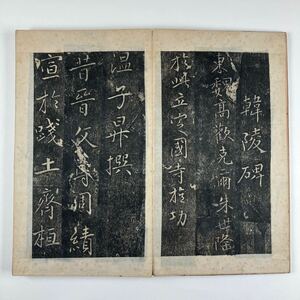 韓陵碑
東魏高歡克爾朱世隆
於此立定國寺旌功
温子昇撰
昔晉文尊周績
宣於踐土齊桓